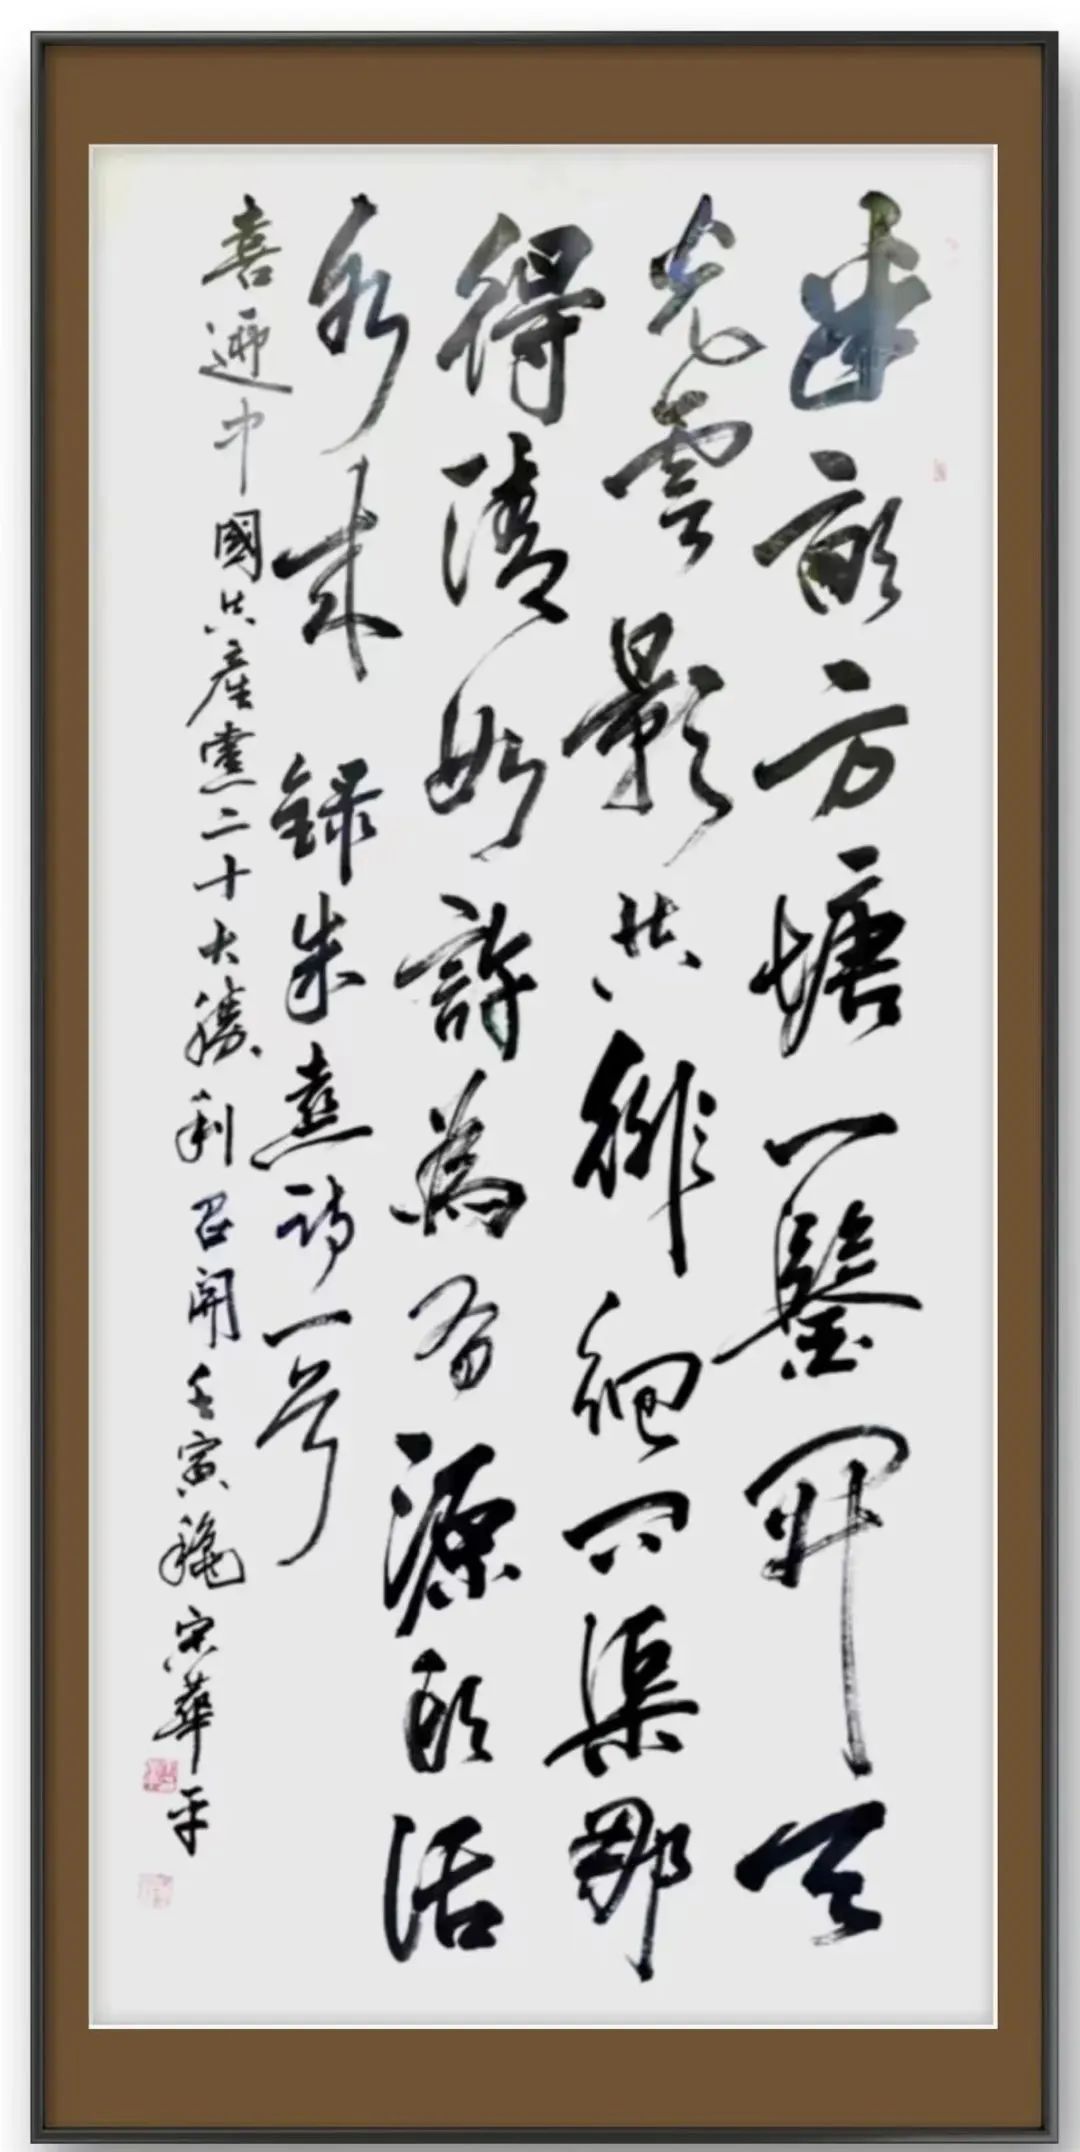 半畝方塘一鑒開天
光雲影共徘徊問渠那
得清如許為有源頭活
水来 録朱熹詩一首
喜迎中國共產黨二十大勝利召開壬寅穐宋華平